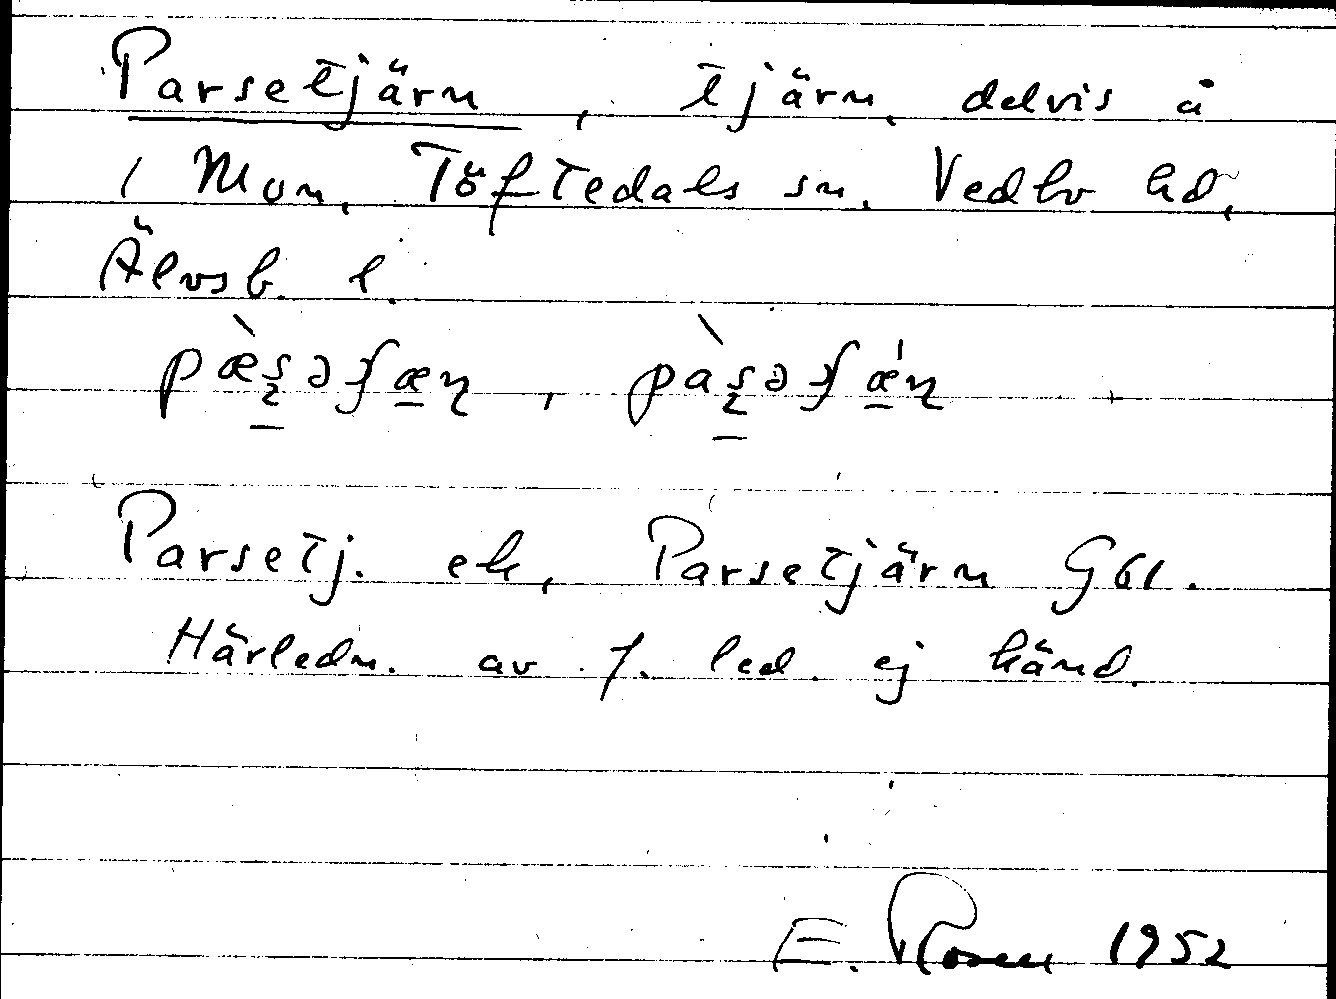 Parsetjärn, tjärn, delvis å
1 Mon, Töftedals sn. Vedbo hd,
Älvsb. l.
pæ̀ʂəʃæɳ, pàʂəʃǽɳ
Parsetj. ek, Parsetjärn Gbl.
Härledn. av f. led ej känd.
E. Rosen 1952